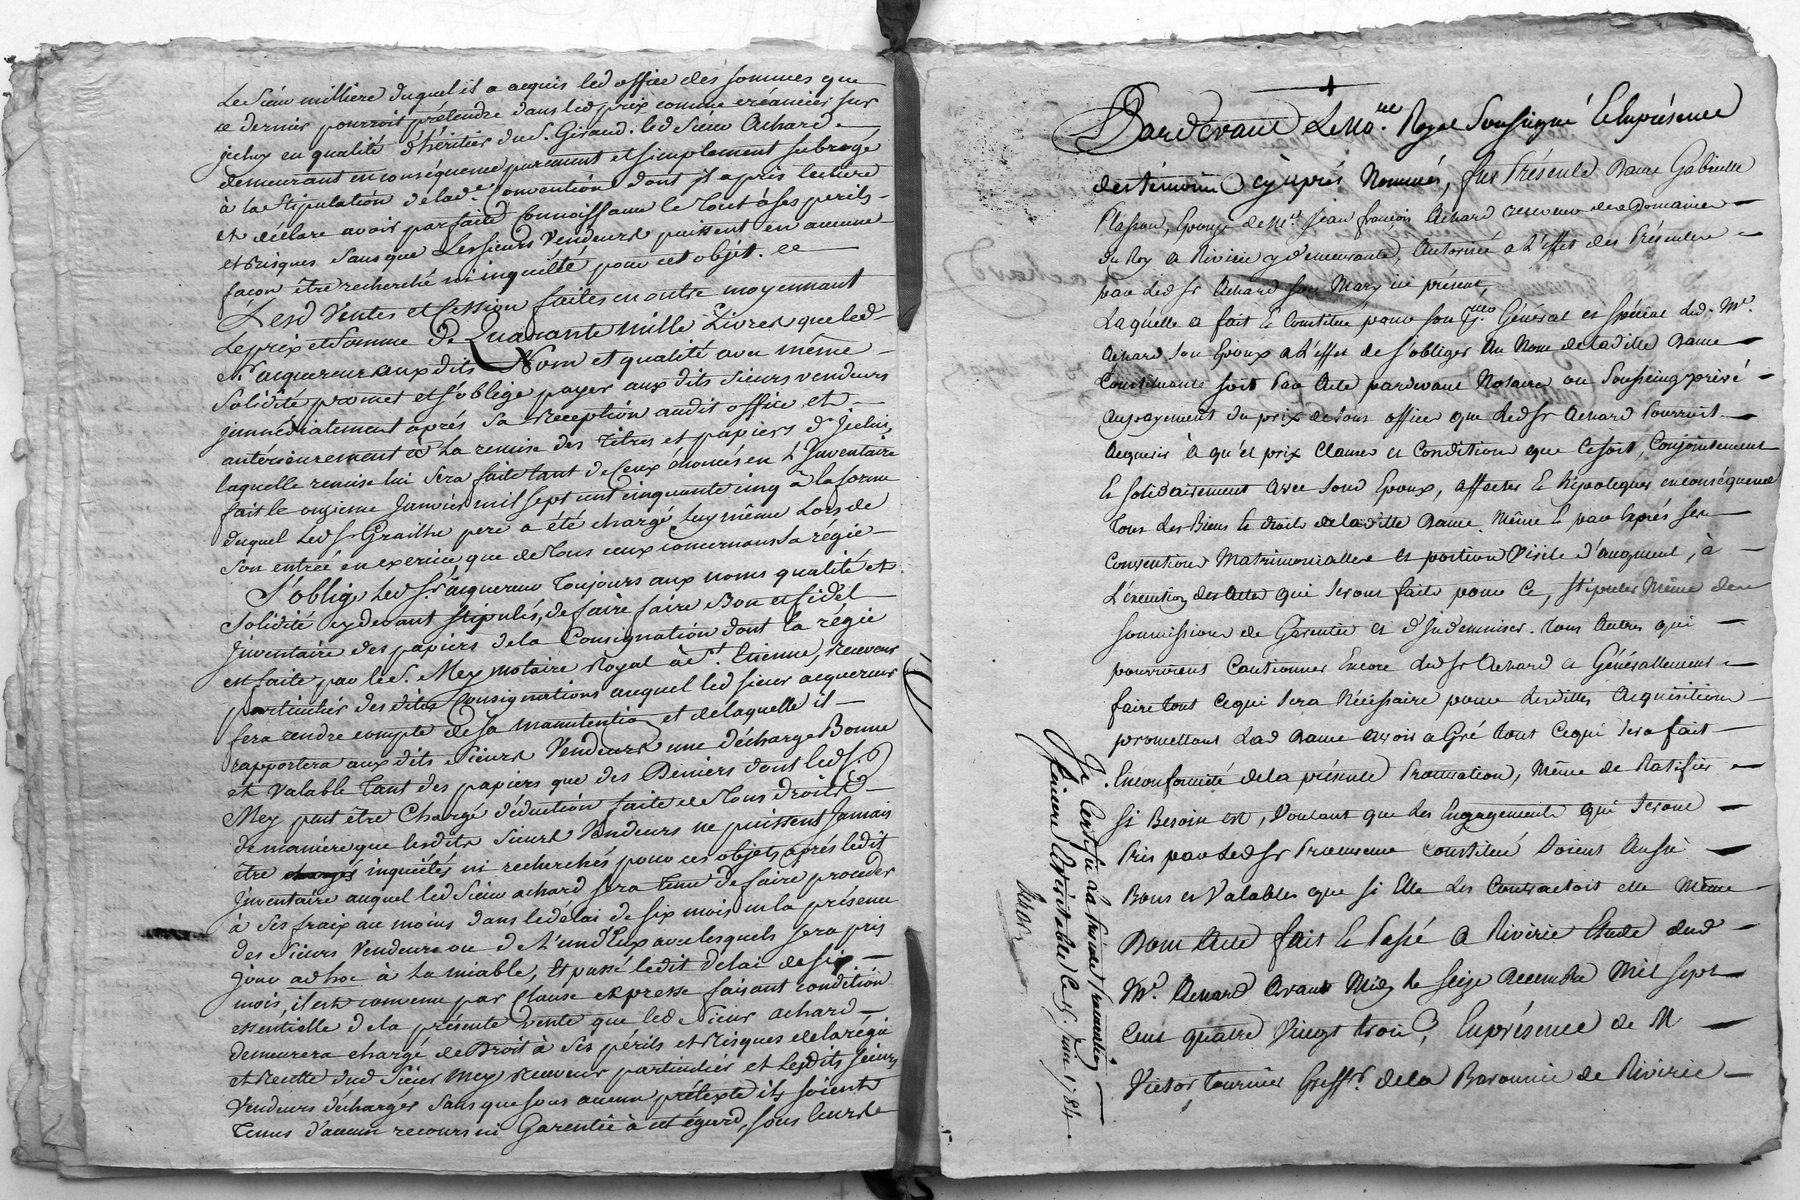 Le Sieur milliere duquel il a acquis led office des sommes que
ce dernier pourroit prétendre dans led prix comme créancier sur
jcelux en qualité d'héritier du S. Giraud. led Sieur Achard
demeurant en conséquence purement et simplement subrogé
à la Stipulation de lad.e Convention dont jl a pris lecture
et déclare avoir parfaite Connoissance le tout à ses perils
et Risques sans que Lessieurs Vendeurs puissent en aucune
façon être recherché ni inquiétté pour cet objet. ce
Lesd Ventes et Cession faites en outre moyennant
Le prix et Somme De Quarante mille Livres que led
Sr acquereur auxdits Nom et qualité avec même
Solidité promet et s'oblige payer aux dits Sieurs vendeurs
jmmédiatement aprés Sa Reception audit office et
antérieurement à La remise des Titres et papiers d'jcelui,
laquelle remise lui Sera faite tant de Ceux énoncés en L'Inventaire
fait le onzieme Janvier mil sept cent cinquante cinq à la forme
duquel led Sr Grailhe pere a été chargé Luy même Lors de
Son entrée en exercice, que de Tous ceux concernans Sa régie
S'oblige led Sr acquereur Toujours aux noms qualité et
Solidité cy devant Stipulés, de faire faire Bon et fidel
Jnventaire des papiers de la Consignation dont la régie
est faite par le S. Mey notaire Royal à St. Etienne, Receveur
particulier des dites Consignations auquel led sieur acquereur
fera rendre compte de Sa manutention et de laquelle il
rapportera aux dits Sieurs Vendeurs une décharge Bonne
et valable Tant des papiers que des Deniers dont led S.
Mey peut être Chargé déduction faite de Tous droits
de maniere que lesdits Sieurs Vendeurs ne puissent Jamais
être chargés inquiétés ni recherchés pour ces objets, aprés ledit
Jnventaire auquel led Sieur achard sera Tenu de faire proceder
à Ses fraix au moins dans le délai de six mois en la présence
des Sieurs Vendeurs ou de L'un d'Eux avec lesquels sera pris
Jour ad hoc à La miable, Et passé ledit delai de six
mois, il est convenu par Clause expresse faisant condition
essentielle de la présente vente que led Sieur achard
demeurera chargé de Droit à Ses périls et Risques de la régie
et Recette dud Sieur Mey Receveur particulier et Lesdits Sieurs
Vendeurs déchargés Sans que sous aucun prétexte ils soient
Tenus d'aucun recours ni Garentie à cet égard, sous leurs
Pardevant Le No.re Royal Soussigné Et Enprésence
des témoins cy aprés Nommés, fut Présente Dame Gabrielle
Plasson, Epouse de Mre Jean françois Achard receveur des Domaines
du Roy a Riverie y demeurante, Autorisée a L'effet des Présentes
par led Sr Achard son Mary ici présent,
Laquelle a fait et Constitue pour son Général et Spécial led. Mr.
Achard son Epoux a L'effet de s'obliger Au Nom de ladille Dame
Constituante soit Par Acte pardevant Notaire ou Sousseing privé
au payement du prix de tous office que led Sr Achard Pourroit
Acquerir à quel prix Clauses et Condition que Cesoit, Conjointement
Et Solidairement Avec Sond Epoux, affecter Et hipotéquer en conséquence
tous Les Biens Et droits de ladille Dame Même Et par exprés Ses
Convention Matrimonialles et portion Virile d'augment, à
L'éxecution des Actes qui seront faits pour Ce, Stipuler Même des
Soumissions de Garentie et d'Indemniser tous Autres qui
pourroient Cautionner Encore led Sr Achard et Générallement
faire tout cequi sera Nécéssaire pour lesdittes Acquisitions
promettant Lad Dame avoir agré tout Cequi sera fait
En conformité de la présente Procuration, Même de Ratifier
Si Besoin est, Voulant que Les Engagements qui seront
Pris par Led Sr Procureur constitué Soient Aussi
Bons et Valables que Si Elle Les Contractoit elle Même
Dont Acte fait Et Passé A Riverie Etude dud
Mr. Achard avant Midy le Seize Decembre Mil Sept
Cent quatre Vingt trois, Enprésence de M
Victor tournier Greff.r de la Baronnie de Riverie
Je Certifie la présente Procuration
Sincere et Véritable Ce 1784.